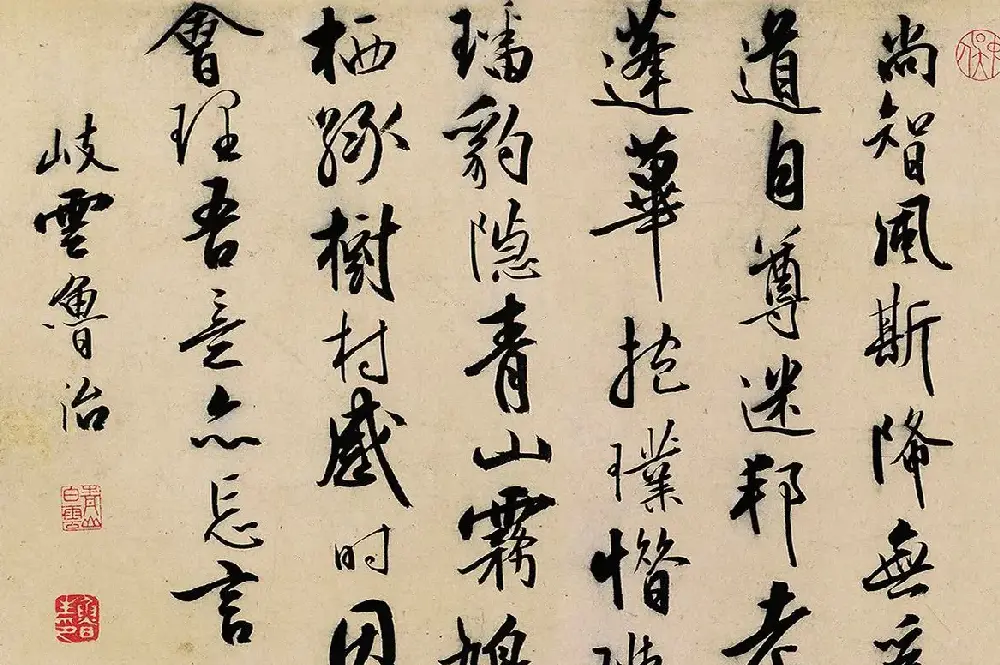 尚智風斯降無
道自尊迷邦老
蓬蓽抱璞惜
璠豹隱青山霧鳩
栖綠樹村感时因
會理吾意亦忘言
岐雲魯治
青山白雲